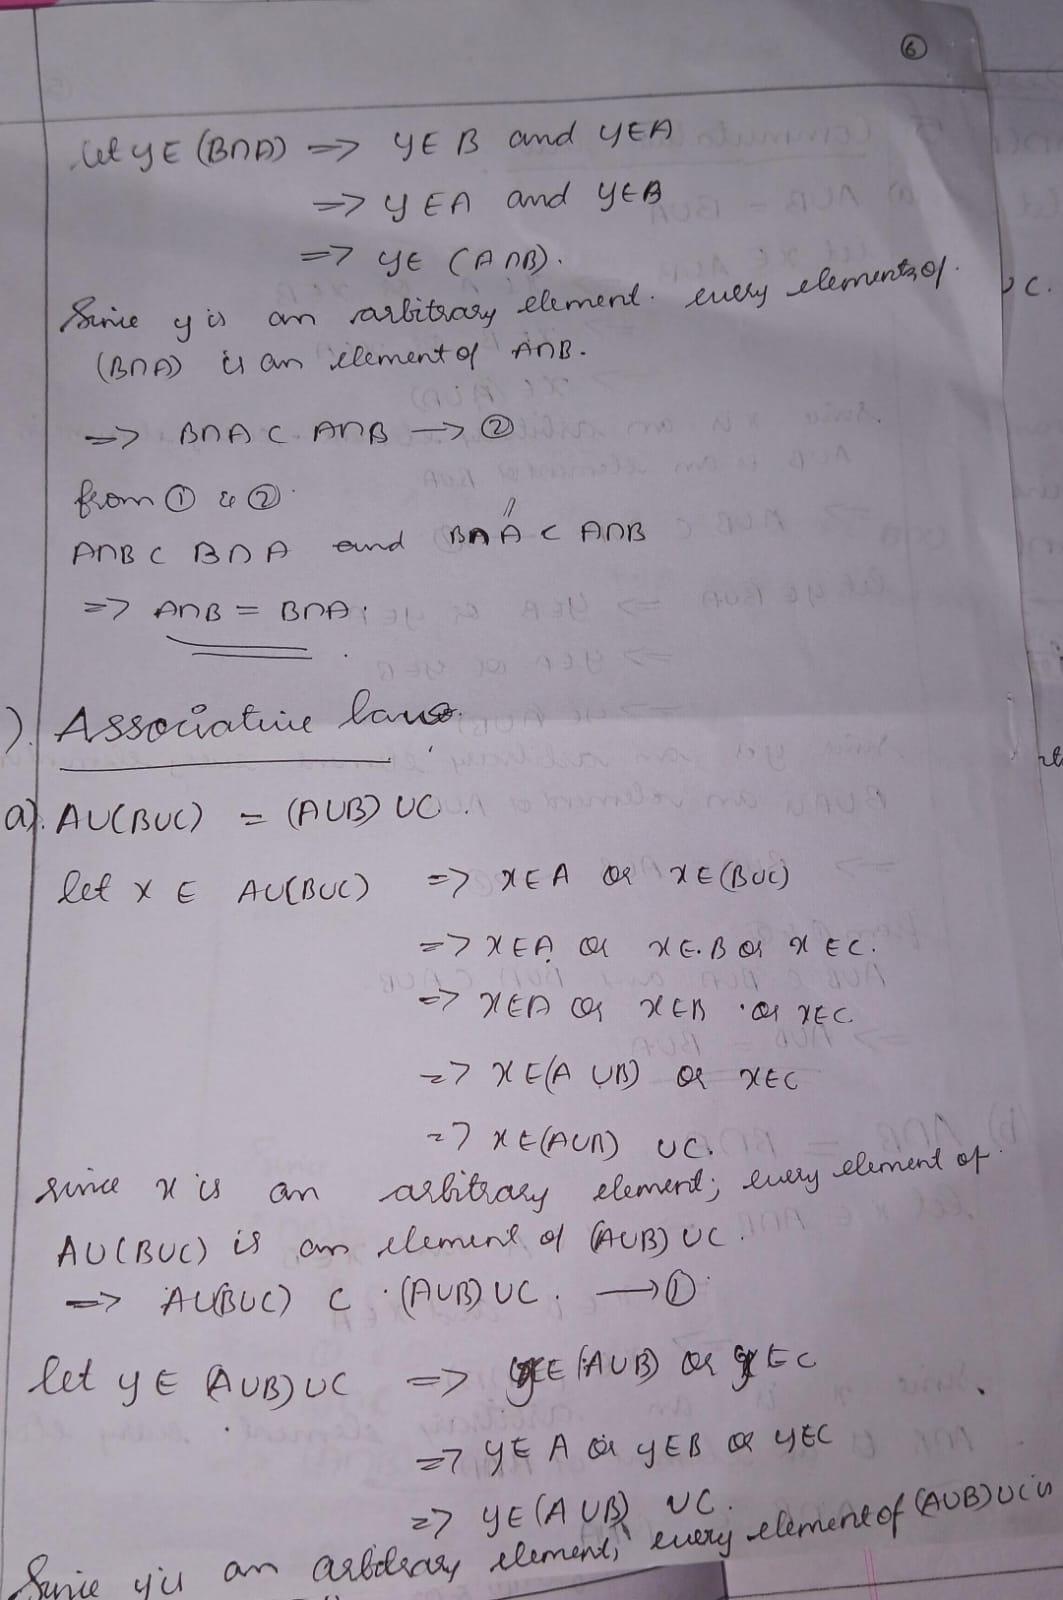 6
let y ∈ (B∩A) => y ∈ B and y ∈ A
=> y ∈ A and y ∈ B
=> y ∈ (A∩B).
Since y is an arbitrary element. every elements of.
(B∩A) is an element of A∩B.
=> B∩A ⊂ A∩B → ②
from ① & ②.
A∩B ⊂ B∩A and B∩A ⊂ A∩B
=> A∩B = B∩A
). Associative laws.
a). A∪(B∪C) = (A∪B)∪C.
let x ∈ A∪(B∪C) => x ∈ A or x ∈ (B∪C)
=> x ∈ A or x ∈ B or x ∈ C.
=> x ∈ A or x ∈ B or x ∈ C
=> x ∈ (A∪B) or x ∈ C
=> x ∈ (A∪B) ∪C.
since x is an arbitrary element; every element of
A∪(B∪C) is an element of (A∪B)∪C.
=> A∪(B∪C) ⊂ (A∪B)∪C. → ①
let y ∈ (A∪B)∪C => y ∈ (A∪B) or y ∈ C
=> y ∈ A or y ∈ B or y ∈ C
=> y ∈ (A∪B) ∪C.
Since y is an arbitrary element, every element of (A∪B)∪C is